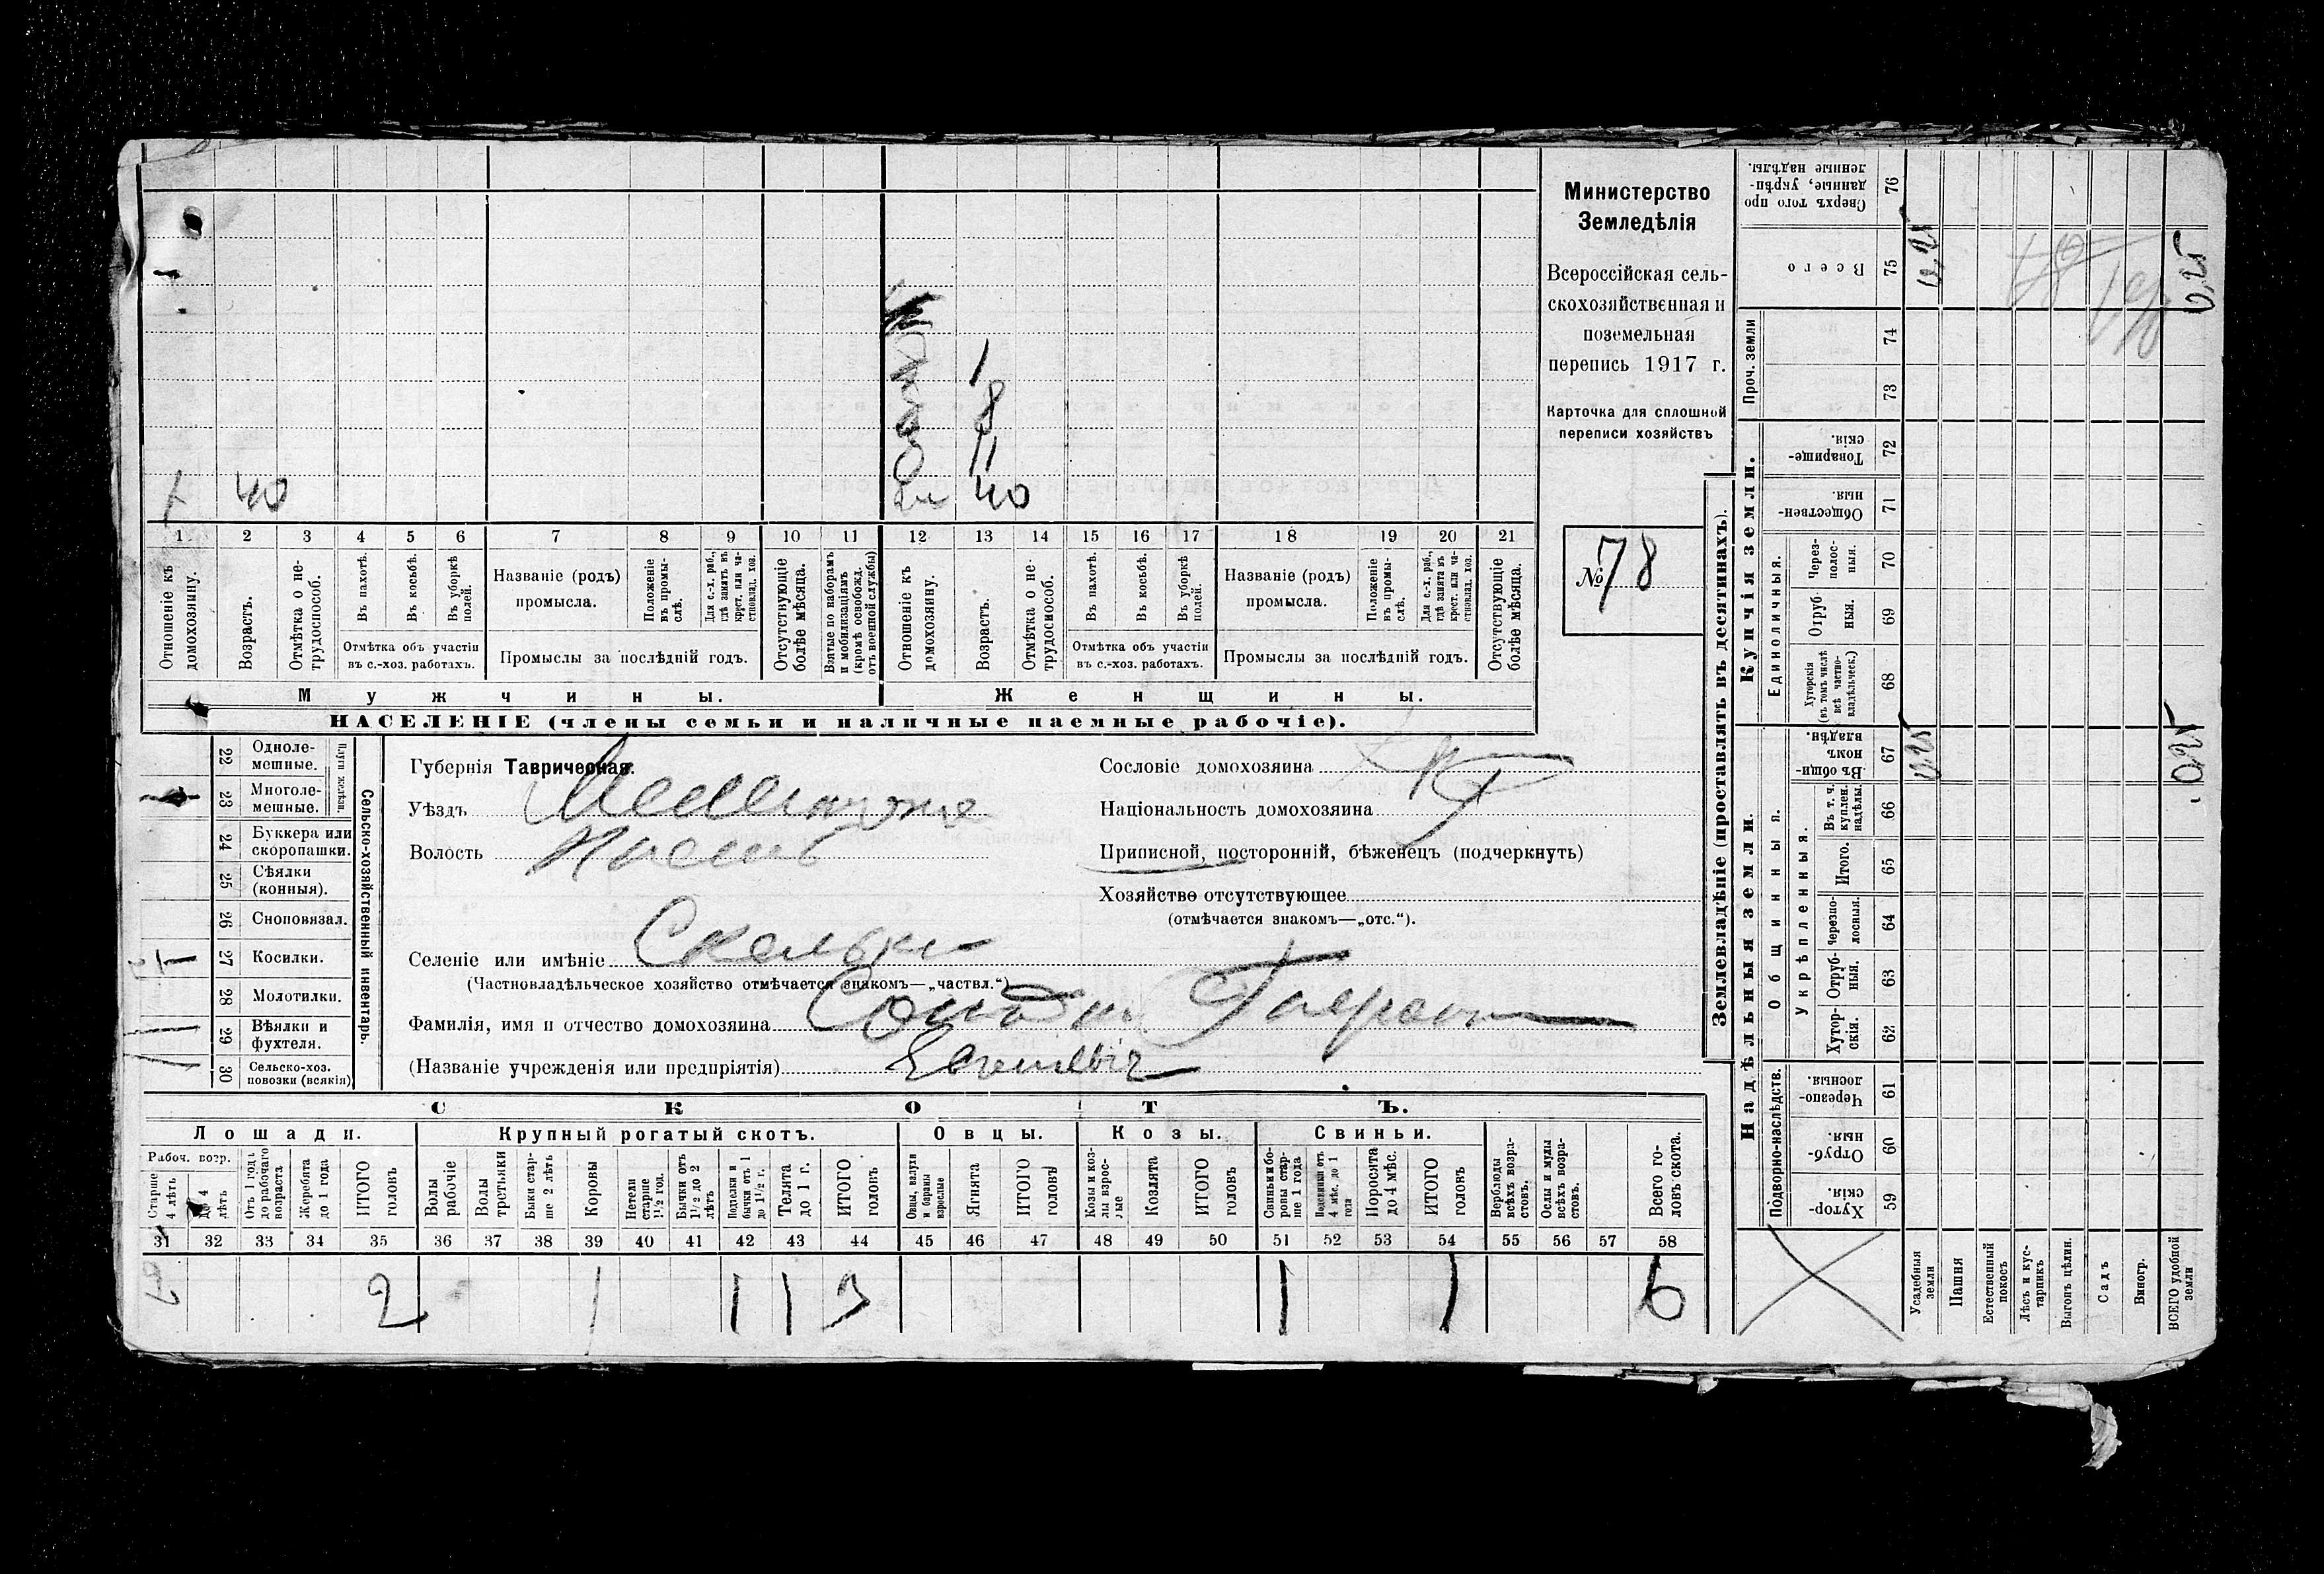 Министерство
Земледѣлія
Всероссійская сель-
скохозяйственная и
поземельная
перепись 1917 г.
Карточка для сплошной
переписи хозяйствъ
№ 78
1
8
11
1 40
40
1 2 3 4 5 6 7 8 9 10 11 12 13 14 15 16 17 18 19 20 21
Отношеніе къ домохозяину.
Возрастъ.
Отмѣтка о не-трудоспособ.
Въ пахотѣ.
Въ косьбѣ.
Въ уборкѣ полей.
Отмѣтка объ участіи
въ с.-хоз. работахъ.
Названіе (родъ)
промысла.
Положеніе въ промы-слѣ.
Для с.-х. раб., гдѣ занятъ въ крест. или ча-стновлад. хоз.
Промыслы за послѣдній годъ.
Отсутствующіе болѣе мѣсяца.
Взятые по наборамъ и мобилизаціямъ (кромѣ освобожд. отъ военной службы)
Отношеніе къ домохозяину.
Возрастъ.
Отмѣтка о не-трудоспособ.
Въ пахотѣ.
Въ косьбѣ.
Въ уборкѣ полей.
Отмѣтка объ участіи
въ с.-хоз. работахъ.
Названіе (родъ)
промысла.
Положеніе въ промы-слѣ.
Для с.-х. раб., гдѣ занята въ крест. или ча-стновлад. хоз.
Промыслы за послѣдній годъ.
Отсутствующіе болѣе мѣсяца.
Мужчины.
Женщины.
НАСЕЛЕНІЕ (члены семьи и наличные наемные рабочіе).
22 Одноле-мешные.
23 Многоле-мешные.
24 Буккера или скоропашки.
25 Сѣялки (конныя).
26 Сноповязал.
27 Косилки. 1
28 Молотилки.
29 Вѣялки и фухтеля.
30 Сельско-хоз. повозки (всякія)
Сельско-хозяйственный инвентарь.
Губернія Таврическая.
Уѣздъ
Волость
Селеніе или имѣніе Скельки
(Частновладѣльческое хозяйство отмѣчается знакомъ—„частвл.“)
Фамилія, имя и отчество домохозяина
(Названіе учрежденія или предпріятія)
Сословіе домохозяина
Національность домохозяина
Приписной, посторонній, бѣженецъ (подчеркнуть)
Хозяйство отсутствующее
(отмѣчается знакомъ—„отс.“).
СКОТЪ.
Лошади.
Крупный рогатый скотъ.
Овцы.
Козы.
Свиньи.
Рабоч. возр.
Старше 4 лѣтъ
До 4 лѣтъ
Отъ 1 года до рабочаго возраста
Жеребята до 1 года
ИТОГО головъ
Волы рабочіе
Волы третьяки
Быки стар-ше 2 лѣтъ
Коровы
Нетели старше 1½ год.
Бычки отъ 1½ до 2 лѣтъ
Подтелки и бычки отъ 1 до 1½ г.
Телята до 1 г.
ИТОГО головъ
Овцы, валухи и бараны взрослые
Ягнята
ИТОГО головъ
Козы и коз-лы взрос-лые
Козлята
ИТОГО головъ
Свиньи и бо-ровы стар-ше 1 года
Подсвинки отъ 4 мѣс. до 1 года
Поросята до 4 мѣс.
ИТОГО головъ
Верблюды всѣхъ возра-стовъ.
Ослы и мулы всѣхъ возра-стовъ.
Всего го-ловъ скота.
31 32 33 34 35 36 37 38 39 40 41 42 43 44 45 46 47 48 49 50 51 52 53 54 55 56 57 58
2 2 1 1 1 3 1 1 6
Землевладѣніе (проставлять въ десятинахъ).
Надѣльныя земли.
Купчія земли.
Проч. земли
Подворно-наслѣдств.
Общинныя.
Укрѣпленныя.
Единоличныя.
Сверхъ того про-данные, укрѣп-ленные надѣлы. 76
Всего 75 0,25 0,25
74
73
Товарище-скія. 72
Обществен-ныя. 71
Через-полос-ныя. 70
Отруб-ныя. 69
Хуторскія (въ томъ числѣ всѣ частно-владѣльческ.) 68
Въ общи-номъ владѣн. 67 0,25 0,25
Въ т. ч. куплен. надѣлы. 66
Итого. 65
Черезпо-лосныя. 64
Отруб-ныя. 63
Хутор-скія. 62
Черезпо-лосныя 61
Отруб-ныя 60
Хутор-скія 59
Усадебныя земли
Пашня
Естественный покосъ
Лѣсъ и кус-тарникъ
Выгонъ цѣлин.
Садъ
Виногр.
ВСЕГО удобной земли